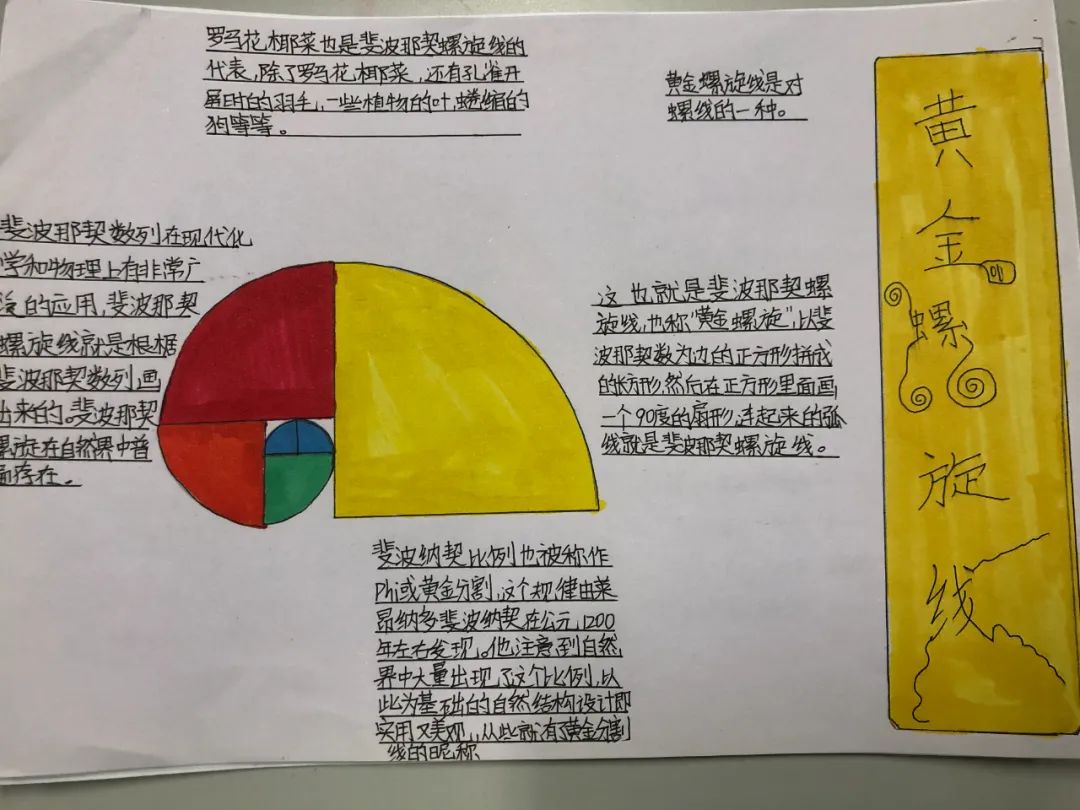 罗马花椰菜也是斐波那契螺旋线的
代表,除了罗马花椰菜,还有孔雀开
屏时的羽毛,一些植物的叶,蜷缩的
狗等等。
黄金螺旋线是对
螺线的一种。
黄
金
螺
旋
线
斐波那契数列在现代化
学和物理上有非常广
泛的应用,斐波那契
螺旋线就是根据
斐波那契数列画
出来的。斐波那契
螺旋在自然界中普
遍存在。
这也就是斐波那契螺
旋线,也称“黄金螺旋”,以斐
波那契数为边的正方形拼成
的长方形,然后在正方形里面画
一个90度的扇形,连起来的弧
线就是斐波那契螺旋线。
斐波纳契比例也被称作
Phi或黄金分割,这个规律由莱
昂纳多斐波纳契在公元1200
年左右发现。他注意到自然
界中大量出现了这个比例,以
此为基础的自然结构设计即
实用又美观,从此就有了黄金分割
线的昵称